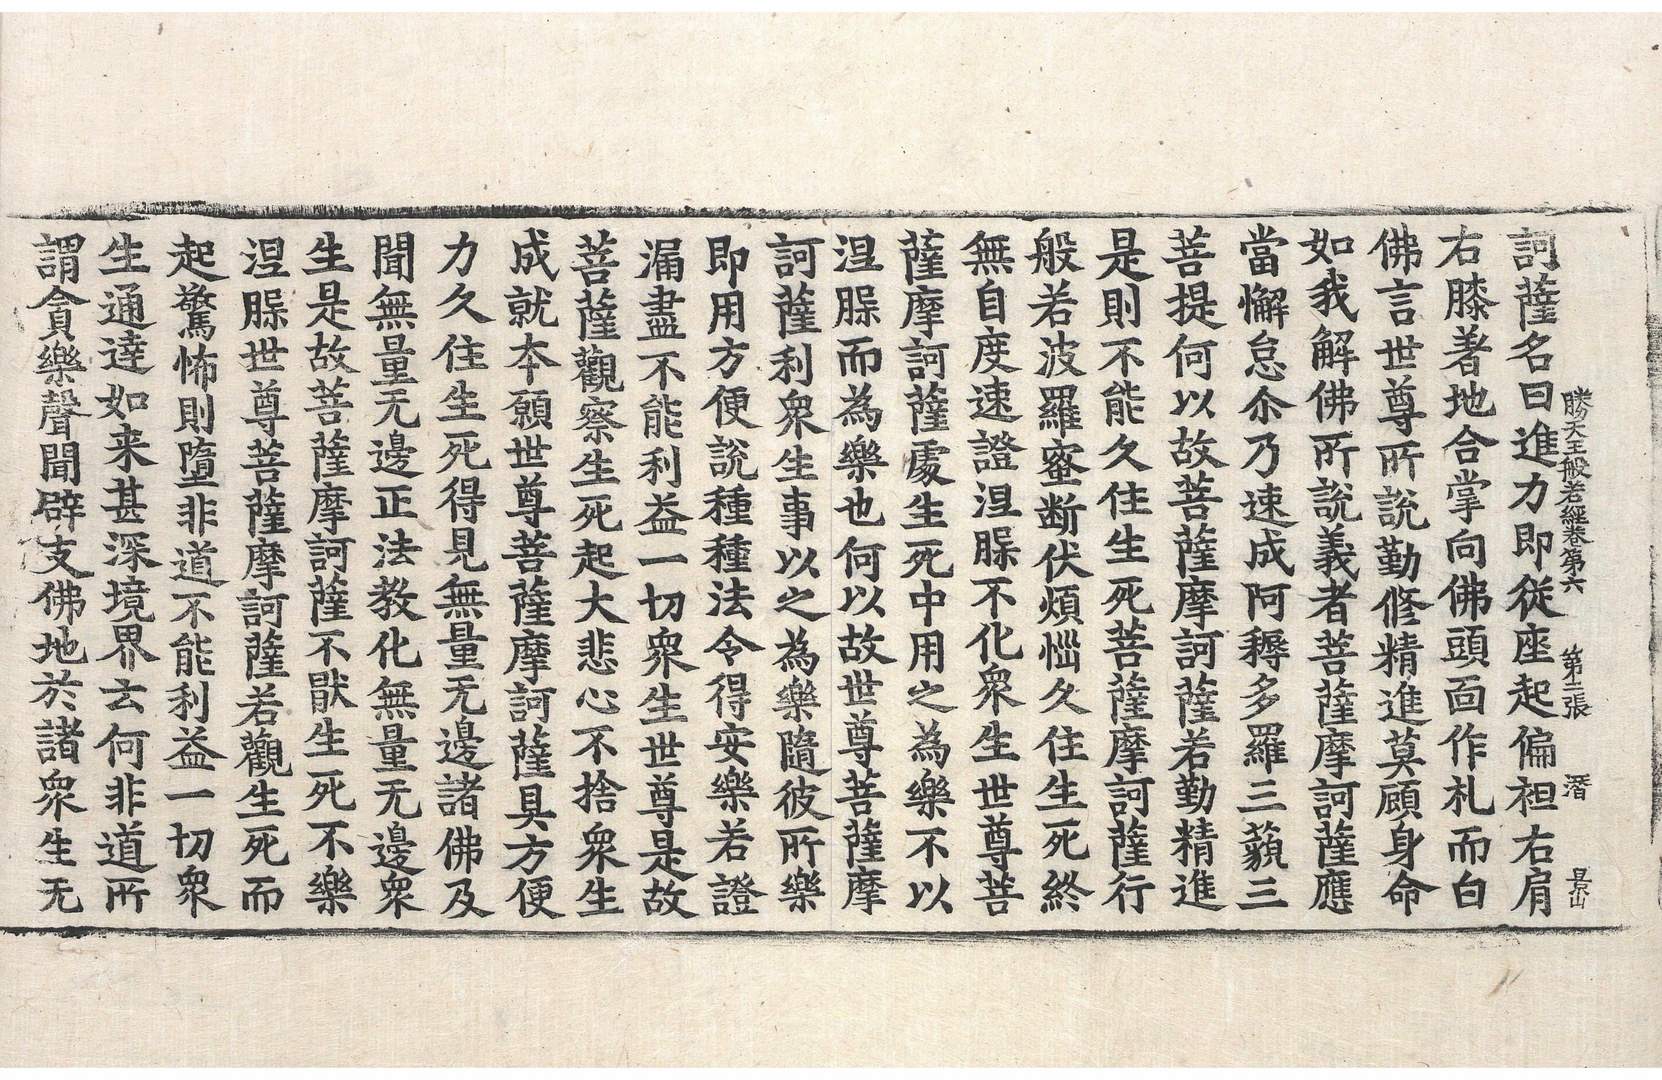 勝天王般若經卷第六 第二張 潛
訶薩名曰進力即從座起偏袒右肩
右膝著地合掌向佛頭面作礼而白
佛言世尊所說勤修精進莫顧身命
如我解佛所說義者菩薩摩訶薩應
當懈怠尒乃速成阿耨多羅三藐三
菩提何以故菩薩摩訶薩若勤精進
是則不能久住生死菩薩摩訶薩行
般若波羅蜜断伏煩惱久住生死終
無自度速證涅槃不化衆生世尊菩
薩摩訶薩處生死中用之為樂不以
涅槃而為樂也何以故世尊菩薩摩
訶薩利衆生事以之為樂隨彼所樂
即用方便說種種法令得安樂若證
漏盡不能利益一切衆生世尊是故
菩薩觀察生死起大悲心不捨衆生
成就本願世尊菩薩摩訶薩具方便
力久住生死得見無量无邊諸佛及
聞無量无邊正法教化無量无邊衆
生是故菩薩摩訶薩不厭生死不樂
涅槃世尊菩薩摩訶薩若觀生死而
起驚怖則墮非道不能利益一切衆
生通達如来甚深境界云何非道所
謂貪樂聲聞辟支佛地於諸衆生无